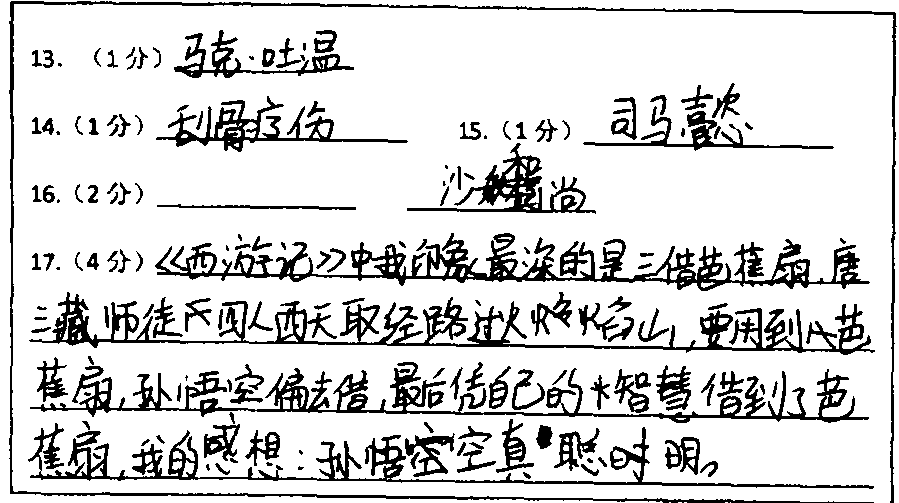 13. （1分）马克·吐温
14.（1分）刮骨疗伤 15.（1分）司马懿
16.（2分） 沙和尚
17.（4分）《西游记》中我印象最深的是三借芭蕉扇.唐
三藏师徒四人西天取经路过火焰山,要用到芭
蕉扇,孙悟空偏去借,最后凭自己的智慧借到了芭
蕉扇,我的感想:孙悟空真聪明。